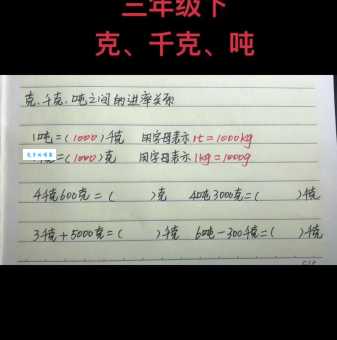 三年级下
克、千克、吨
克、千克、吨之间的进率关系
1吨=(1000)千克 用字母表示 1t=1000kg
=(1000)克 用字母表示 1kg=1000g
4千克600克=( )克 4吨3000克=( )千克
3千克+5000克=( )千克 6吨-300千克=( )千克